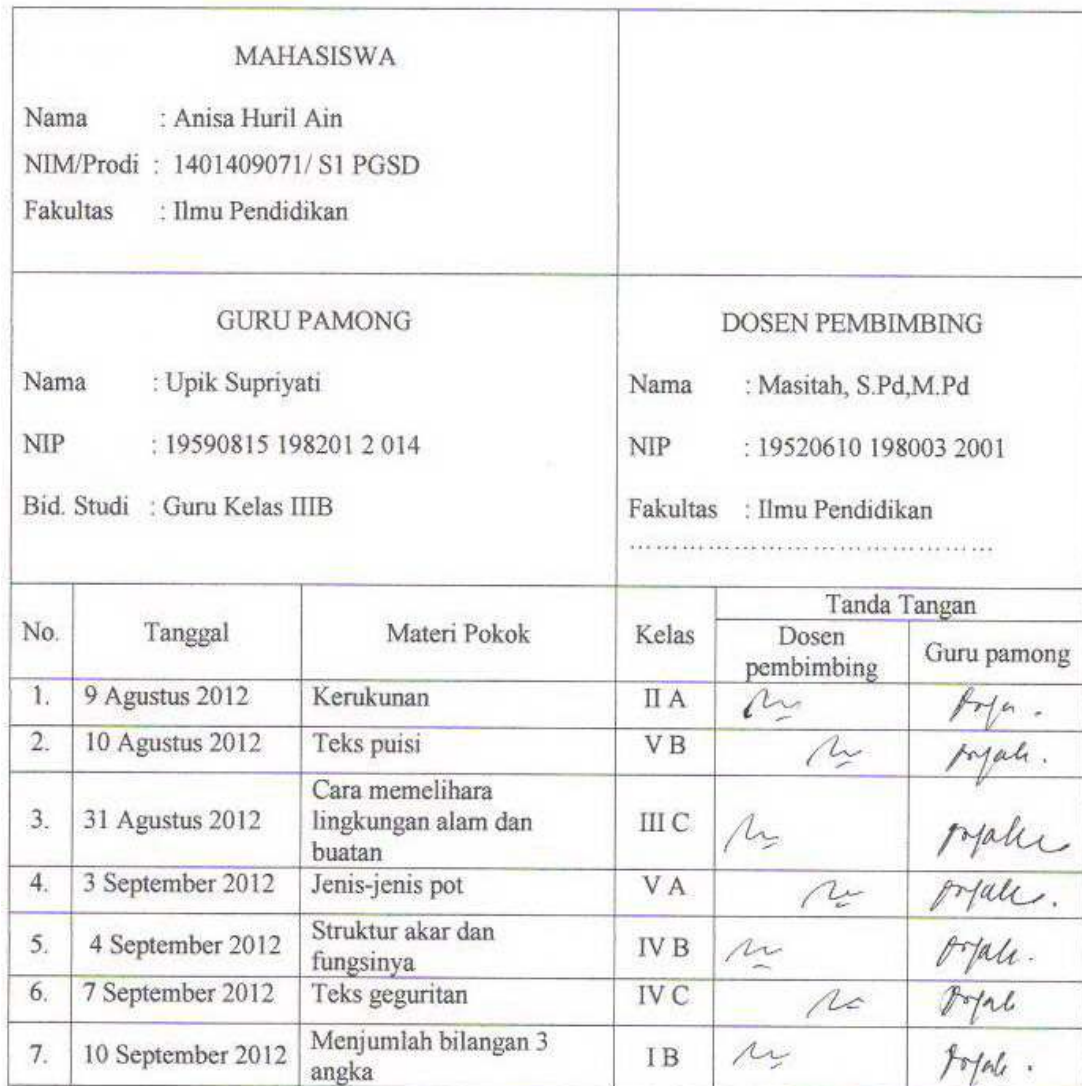 MAHASISWA
Nama : Anisa Huril Ain
NIM/Prodi : 1401409071/ S1 PGSD
Fakultas : Ilmu Pendidikan
GURU PAMONG
Nama : Upik Supriyati
NIP : 19590815 198201 2 014
Bid. Studi : Guru Kelas IIIB
DOSEN PEMBIMBING
Nama : Masitah, S.Pd,M.Pd
NIP : 19520610 198003 2001
Fakultas : Ilmu Pendidikan
No. Tanggal Materi Pokok Kelas Tanda Tangan
Dosen pembimbing Guru pamong
1. 9 Agustus 2012 Kerukunan II A
2. 10 Agustus 2012 Teks puisi V B
3. 31 Agustus 2012 Cara memelihara
lingkungan alam dan
buatan III C
4. 3 September 2012 Jenis-jenis pot V A
5. 4 September 2012 Struktur akar dan
fungsinya IV B
6. 7 September 2012 Teks geguritan IV C
7. 10 September 2012 Menjumlah bilangan 3
angka I B